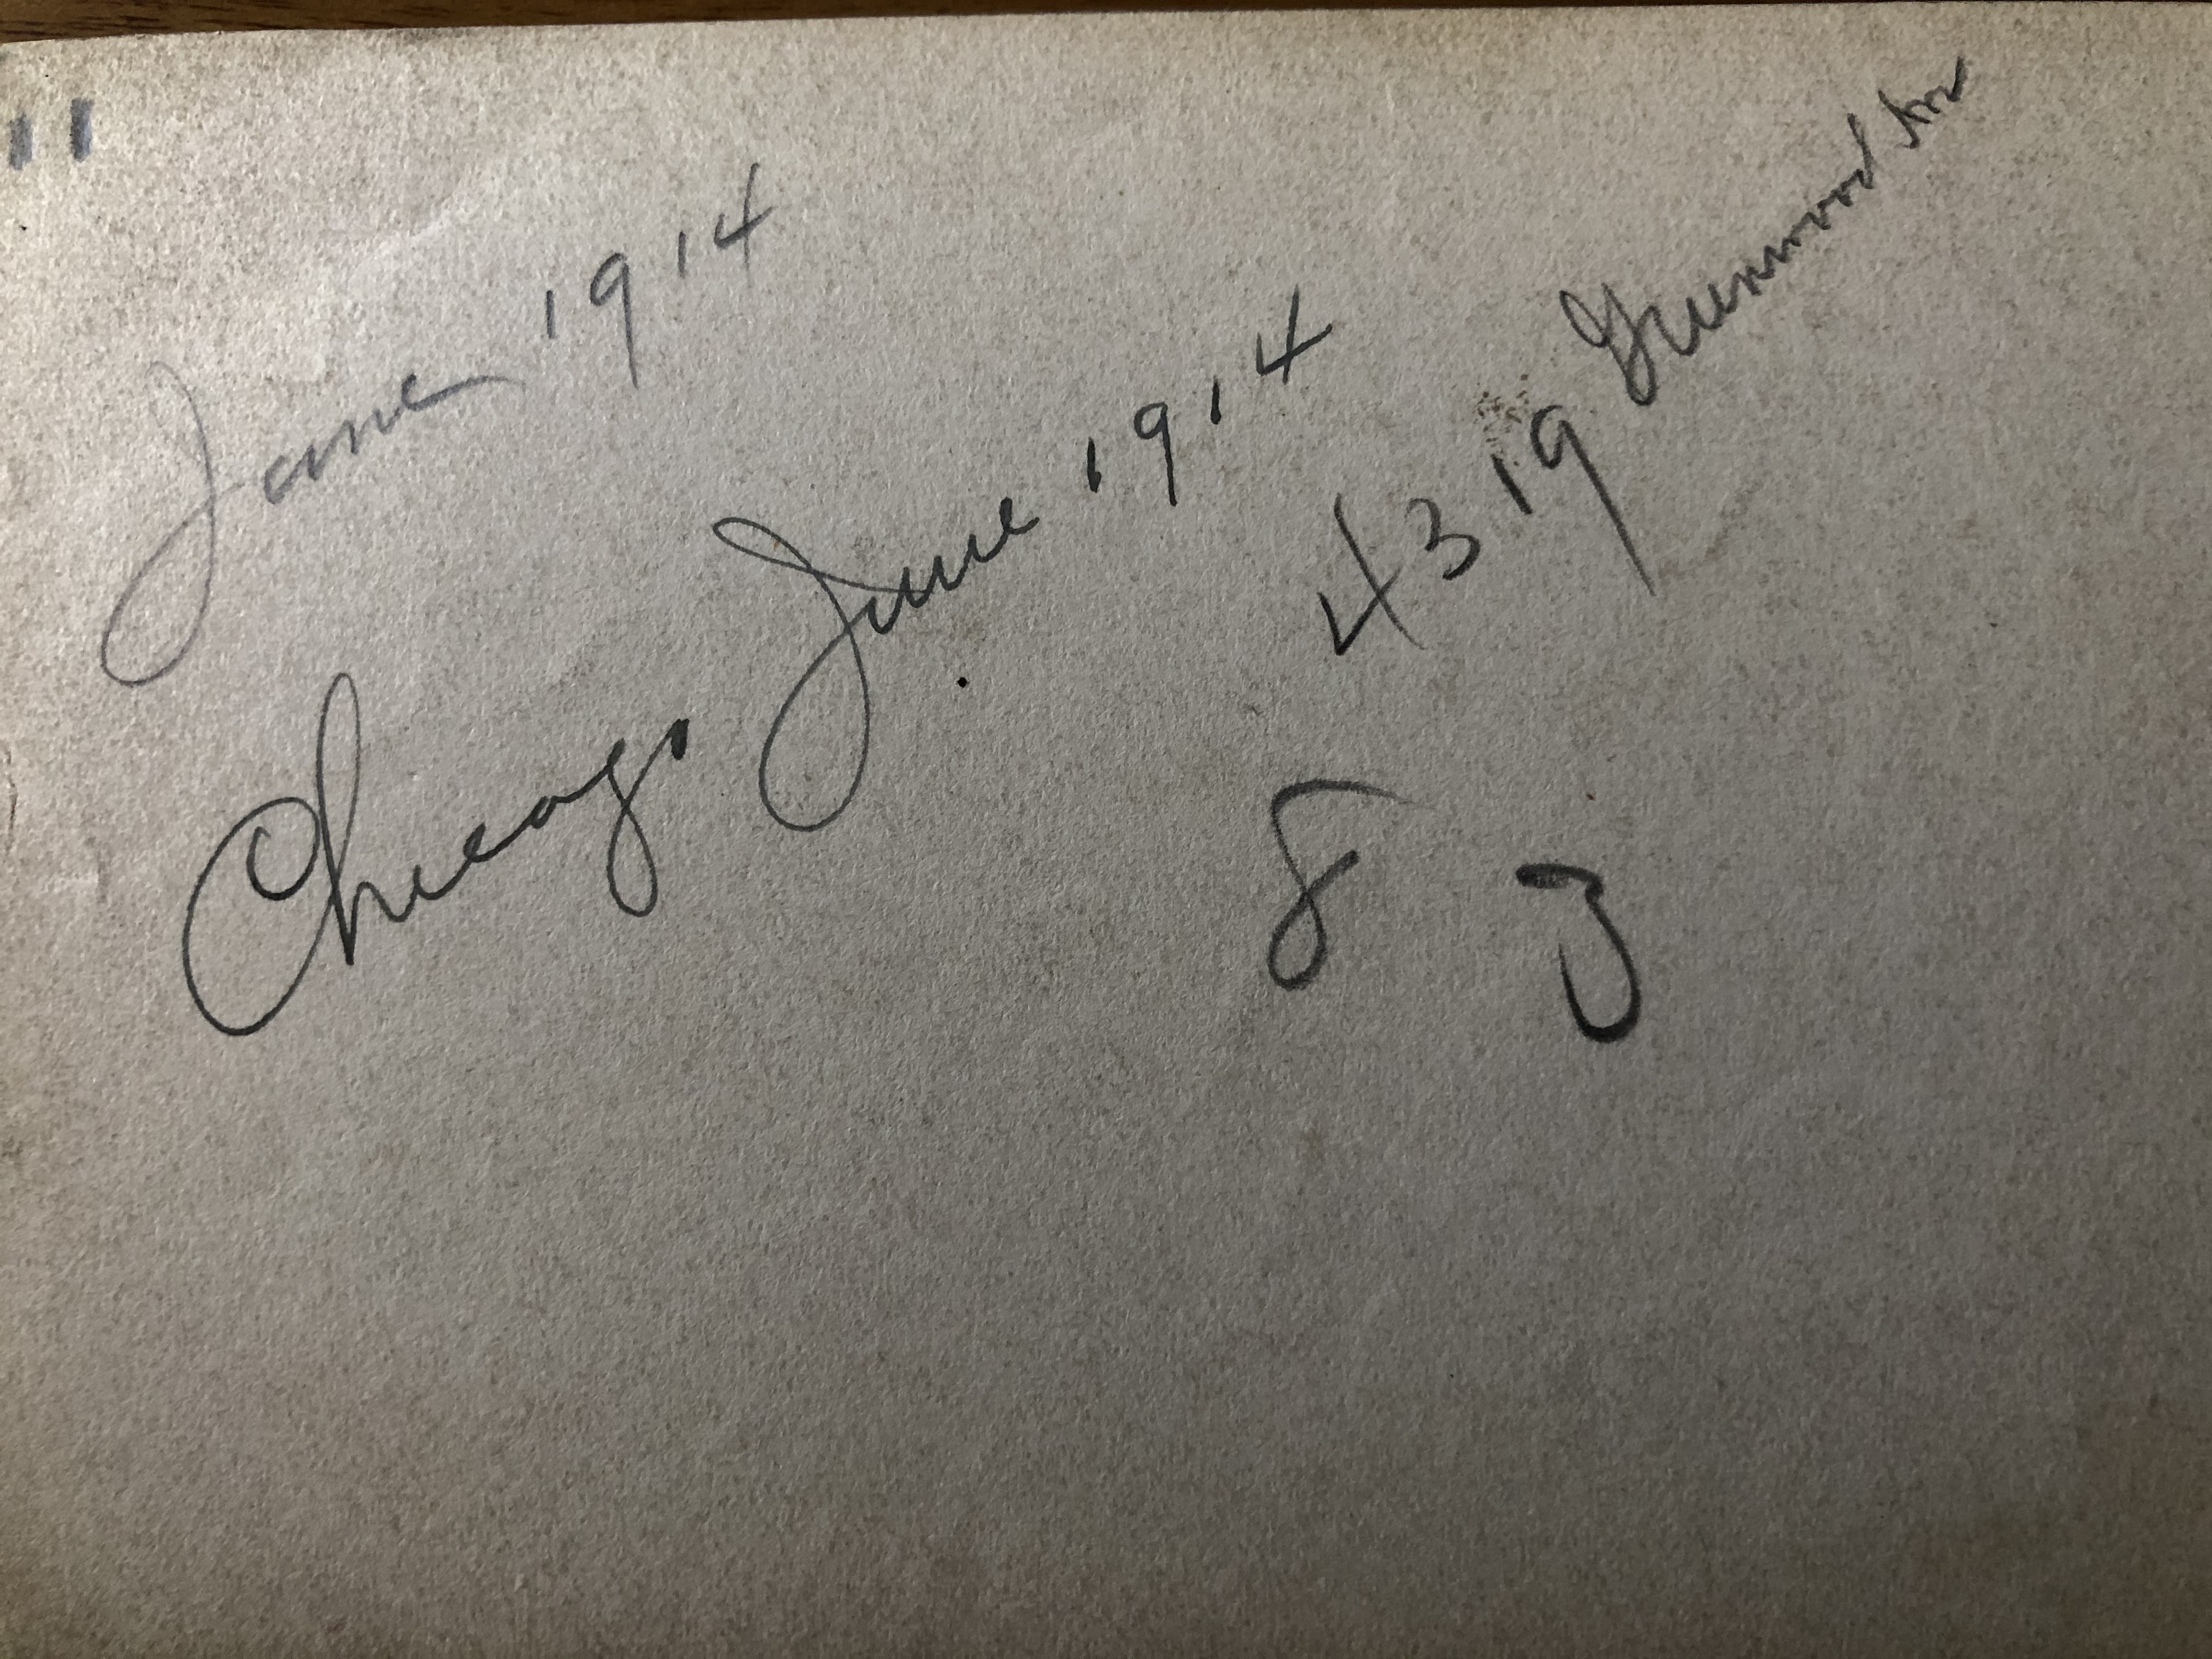 11
June 1914
Chicago June 1914
4319 Greenwood Ave
8 3